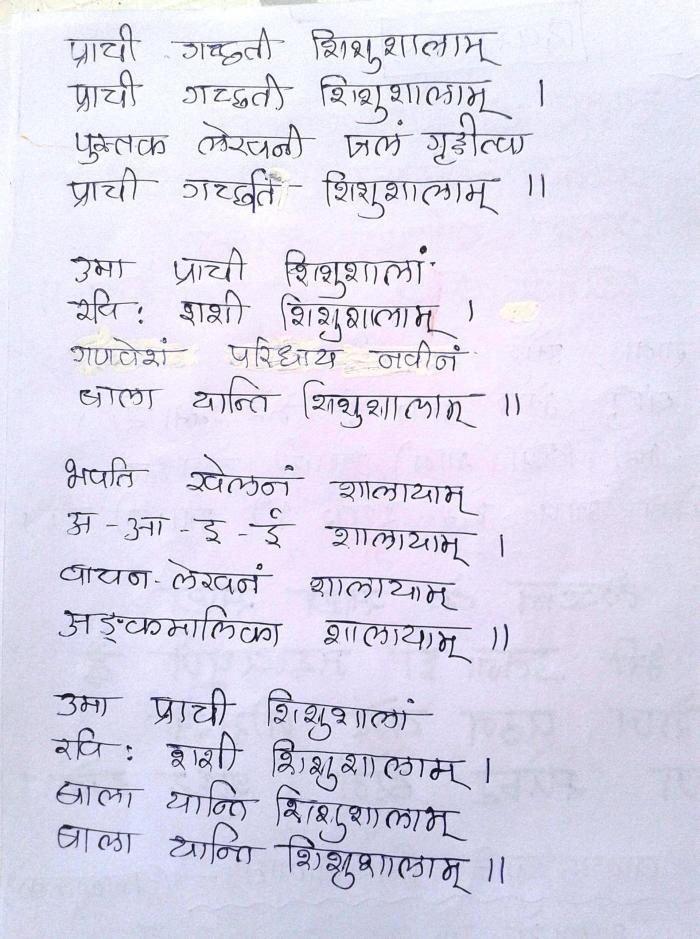 प्राची गच्छती शिशुशालाम्
प्राची गच्छती शिशुशालाम् ।
पुस्तक लेखनी जलं गृहीत्वा
प्राची गच्छति शिशुशालाम् ॥
उमा प्राची शिशुशालां
रविः शशी शिशुशालाम् ।
गणवेशं परिधाय नवीनं
बाला यान्ति शिशुशालाम् ॥
भवति खेलनं शालायाम्
अ - आ - इ - ई शालायाम् ।
वाचन-लेखनं शालायाम्
अङ्कमालिका शालायाम् ॥
उमा प्राची शिशुशालां
रविः शशी शिशुशालाम् ।
बाला यान्ति शिशुशालाम्
बाला यान्ति शिशुशालाम् ॥